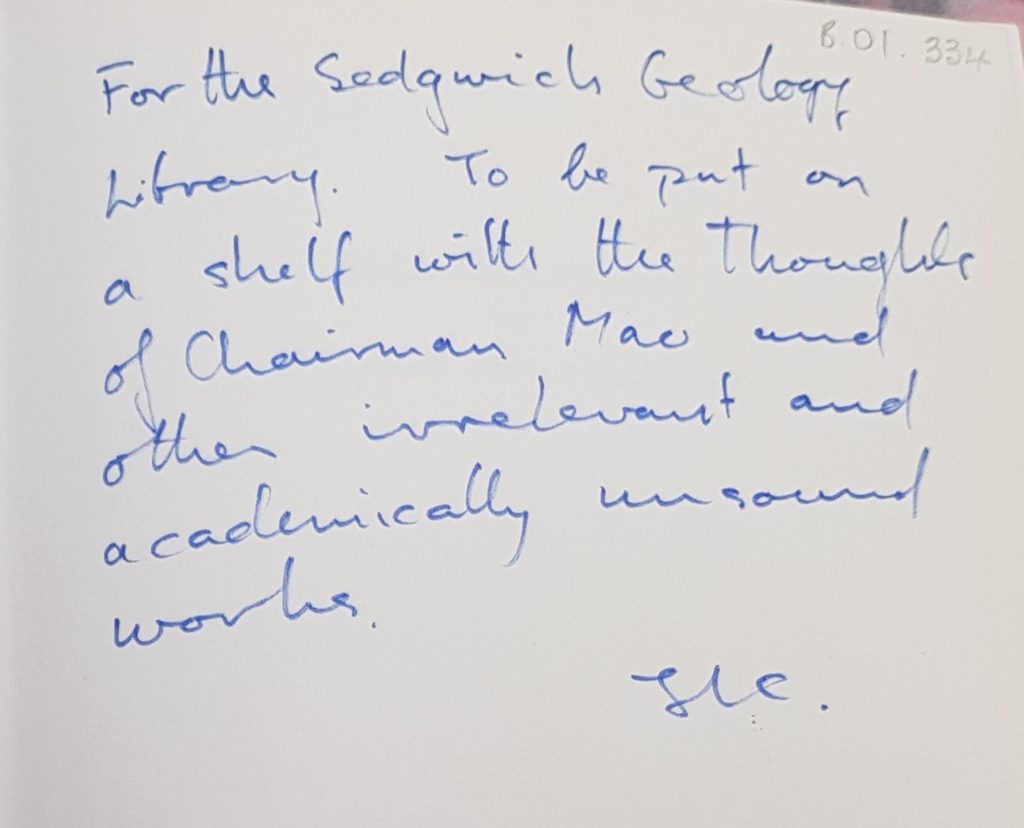 B.01.334
For the Sedgwick Geology
Library. To be put on
a shelf with the Thoughts
of Chairman Mao and
other irrelevant and
academically unsound
works.